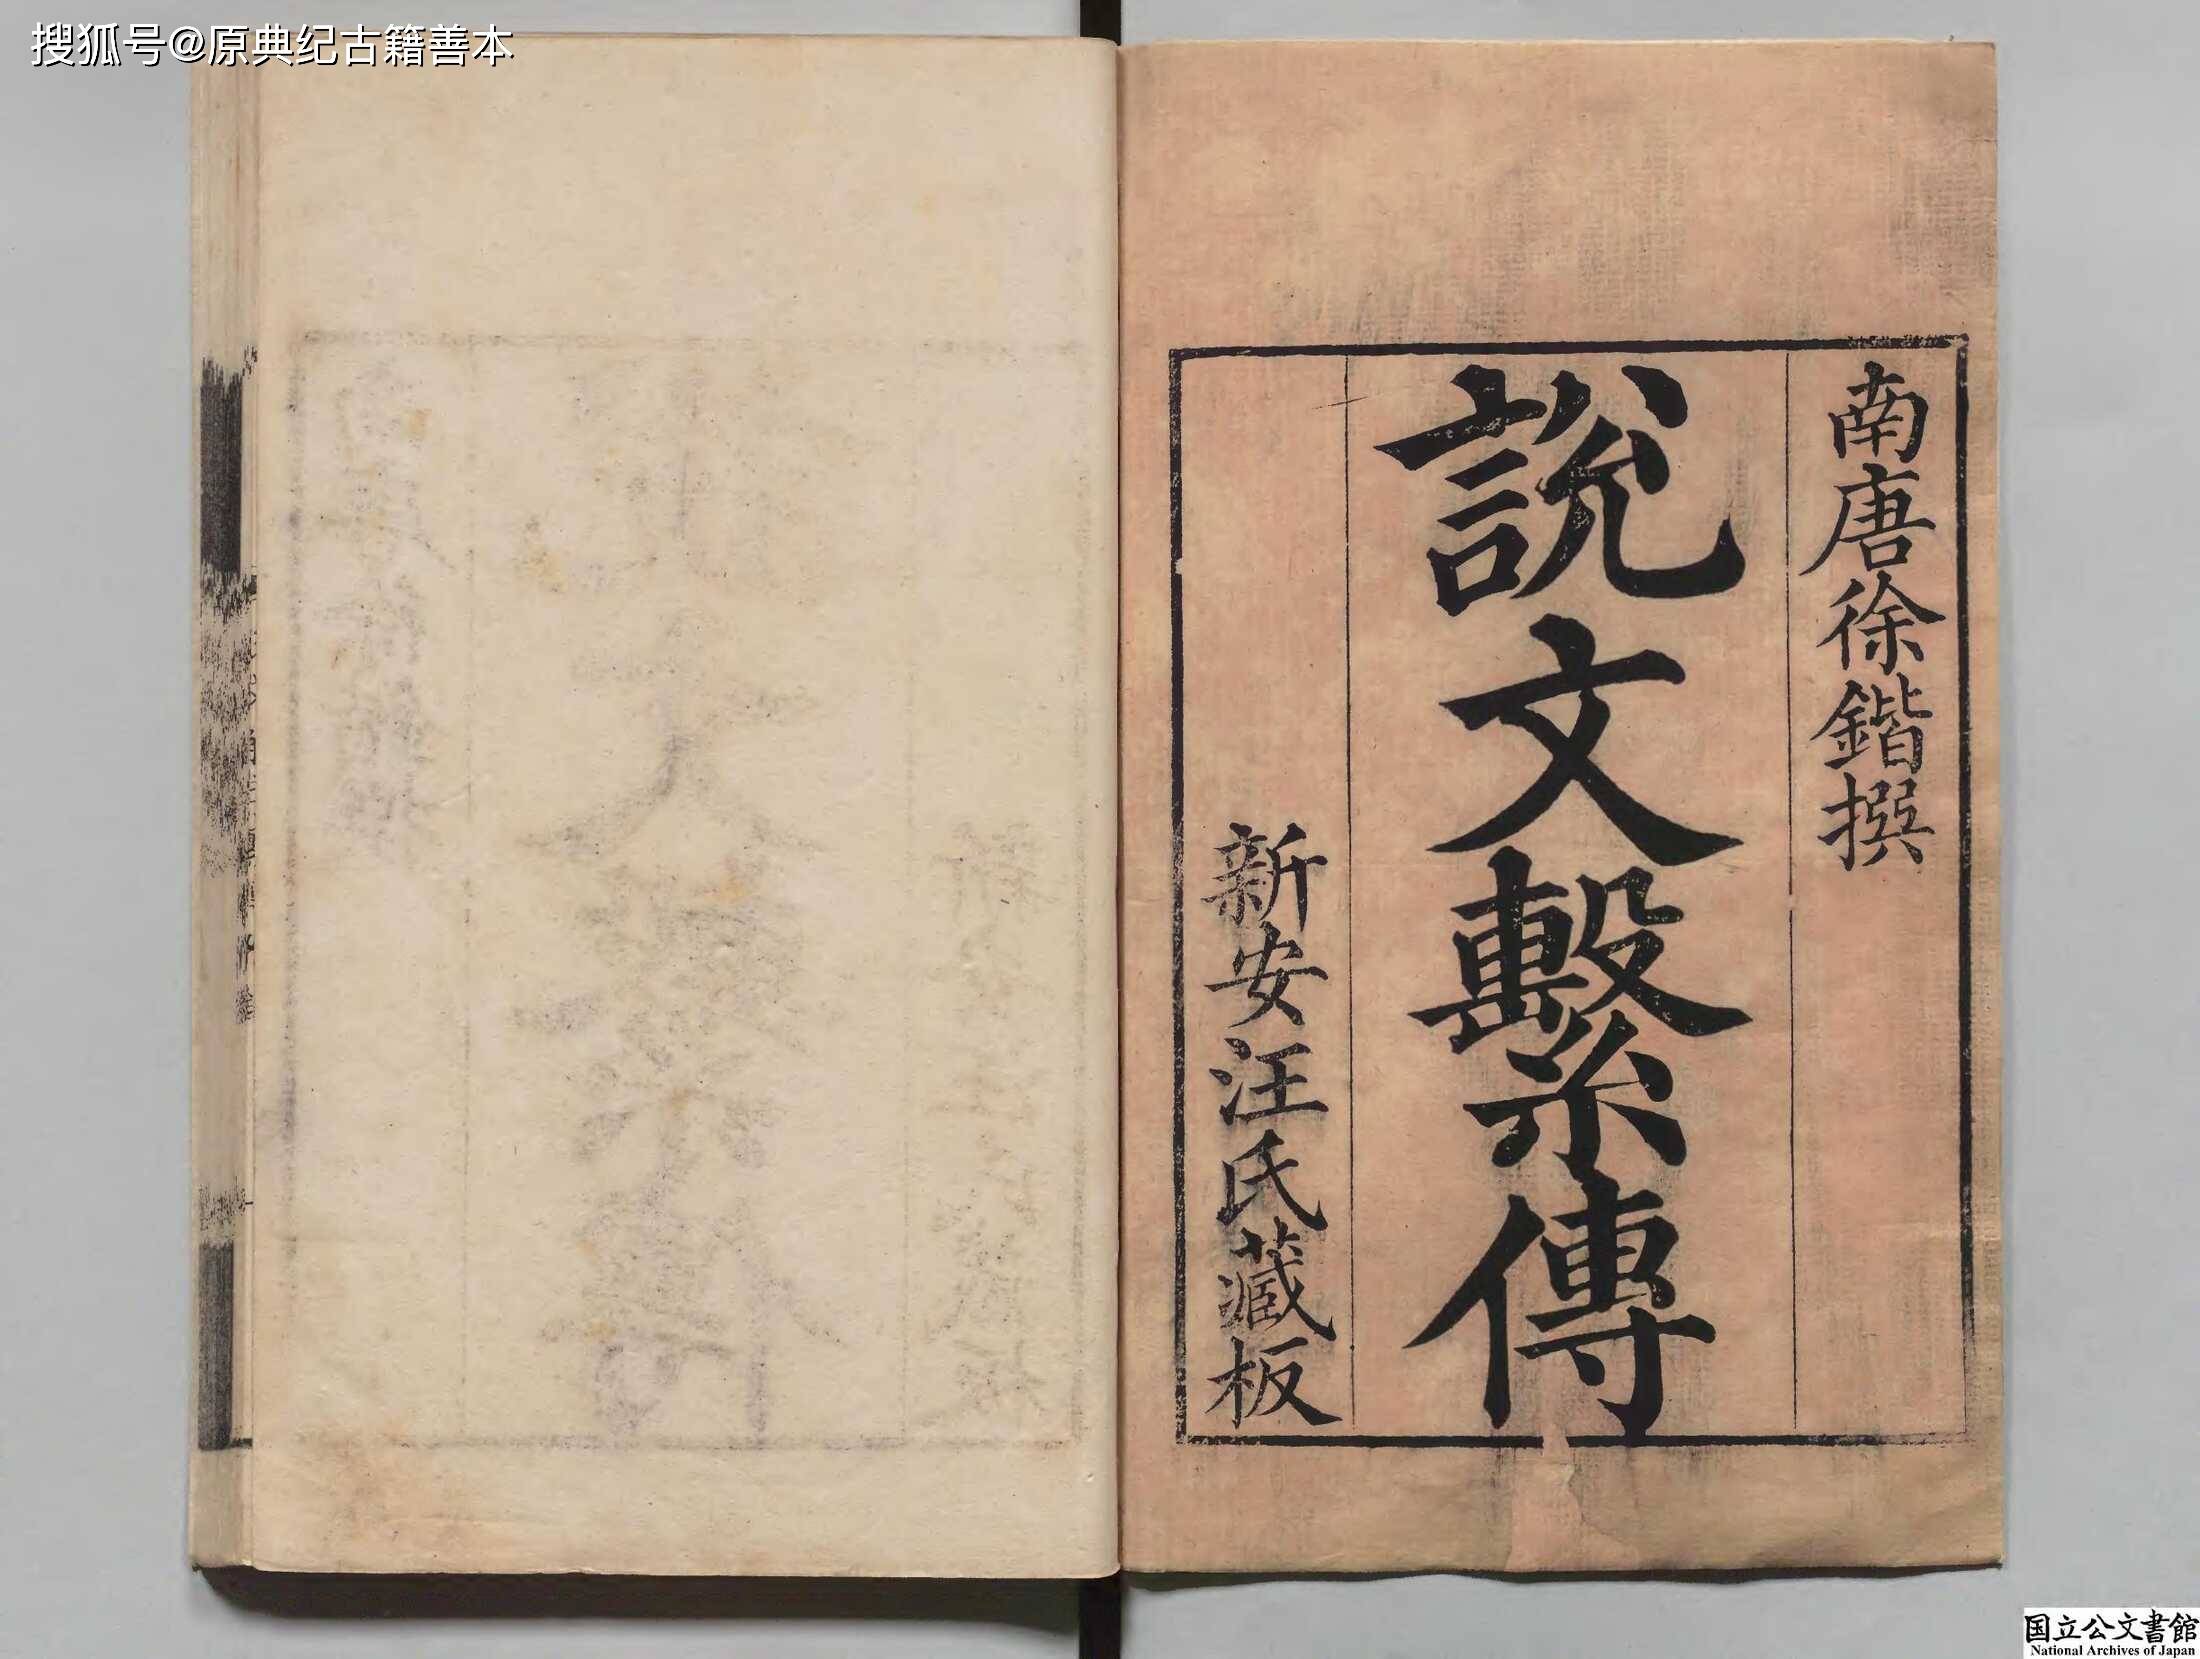 搜狐号@原典纪古籍善本
南唐徐鍇撰
說文繫傳
新安汪氏藏板
国立公文書館
National Archives of Japan